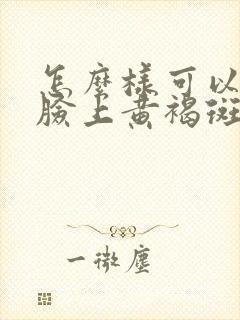 怎麼樣可以
臉上黃褐斑
一微塵